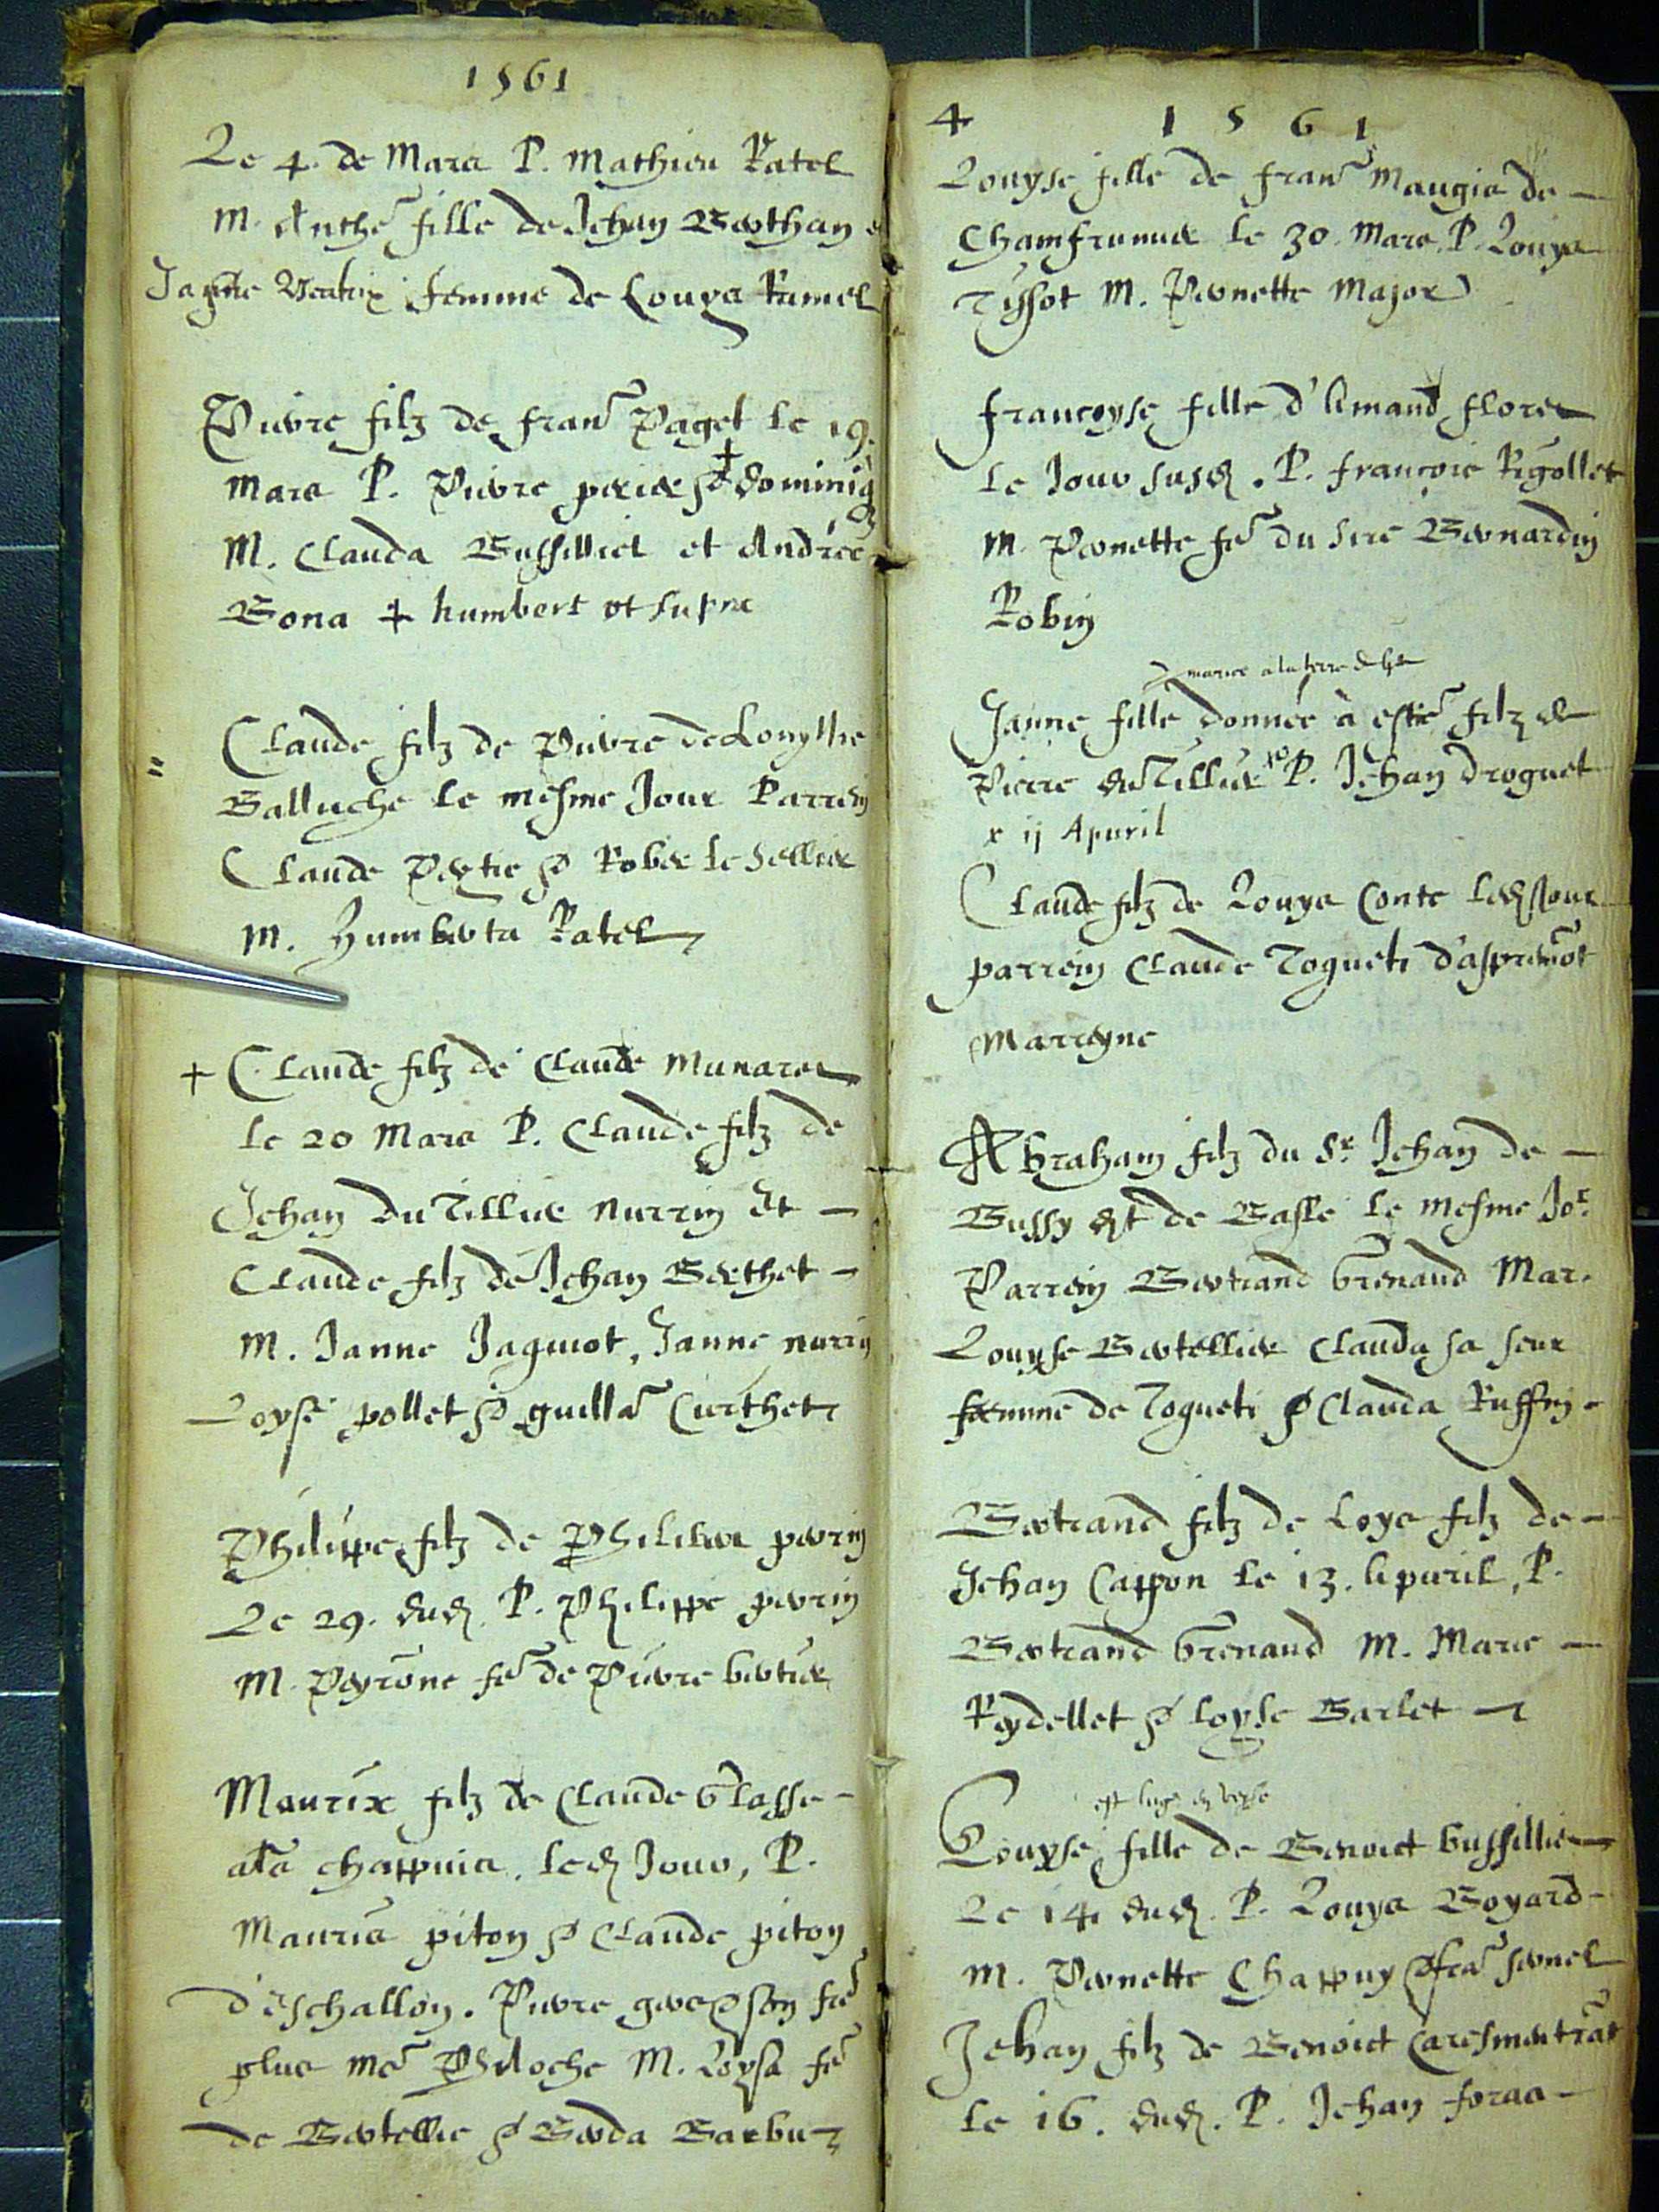 1561
Le 4. de Mars P. Mathieu Ratel
M. Anthe fille de Jehan Berthan
Jaqme femme de Louys Ramel
Pierre filz de Fran Paget le 19.
Mars P. Pierre dominiq
M. Clauda Bussilliet et Andrée
Bona + humbert ut supra
Claude filz de Pierre de
Balluche le mesme Jour Parrein
Claude Rober le Sellier
M. Humberta Ratel
+ Claude filz de Claude Munares
le 20 Mars P. Claude filz de
Jehan du Tillier Nurrin et
Claude filz de Jehan Berthet
M. Janne Jaquiot, Janne nurrin
Loyse pollet & guilla Curthet
Philippe filz de perrin
Le 29. dud. P. Philippe perrin
M. Peyrone fe de Pierre bertier
Mauris filz de Claude Glasse
als chappuis. led Jour, P.
Mauris piton & Claude piton
d'eschallon. Pierre son
plus M. Loysa fe
de Bertellie & Barbu
4 1561
Louyse fille de Fran Maugis de
le 30. Mars. P. Louys
Tissot M. Pernette Major
Françoyse fille d'Amand Flores
Le Jour susd. P. François Rigollet
M. Pernette fe du Sire Bernardin
Robin
mariee a la terre de
Janne fille donnée à filz de
Pierre du Tillier P. Jehan Droguet
x ij Apuril
Claude filz de Louys Conte led Jour
parrein Claude Togueti d'aspremot
Marreyne
Abraham filz du Sr. Jehan de
Bussy dit de Basle le mesme Jor
Parrein Bertrand Grenaud Mar.
Louyse Bertellier Clauda sa seur
femme de Togueti & Clauda Ruffin
Bertrand filz de Loys filz de
Jehan Cappon le 13. Apuril, P.
Bertrand Grenaud M. Marie
Reydellet & Loyse Barlet
Louyse fille de Benoict Bussillie
Le 14 dud. P. Louys Boyard
M. Pernette Chappuy
Jehan filz de Benoict Caresmentrat
Le 16. dud. P. Jehan Foras